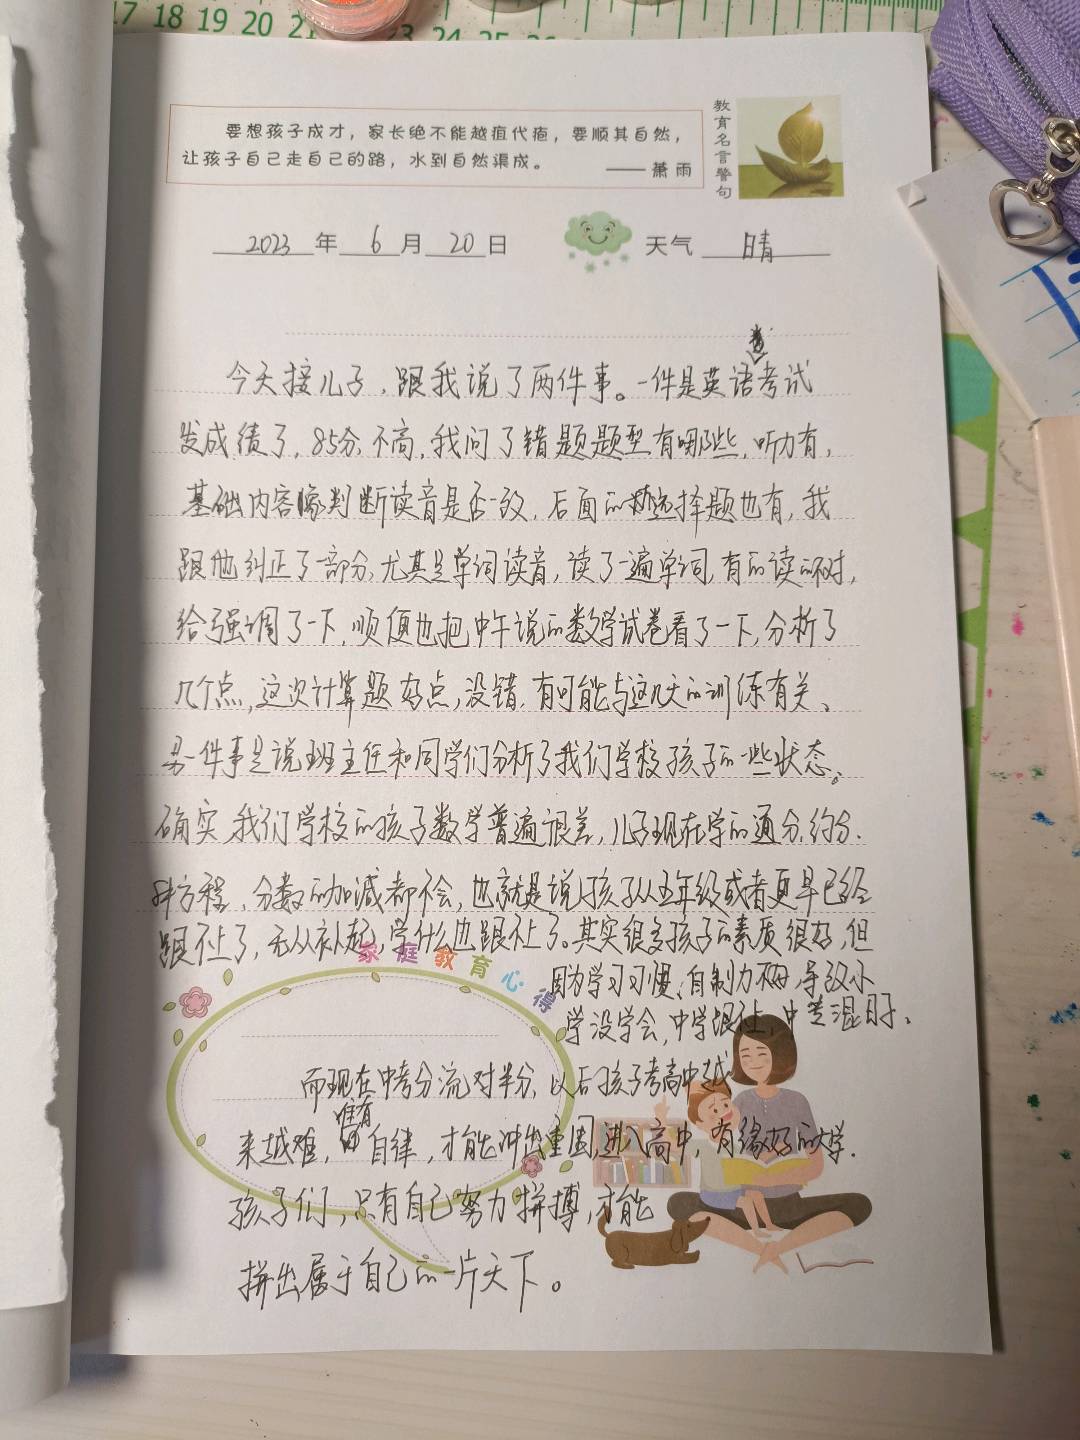 17 18 19 20 21 23 24 25 26
要想孩子成才，家长绝不能越疽代疱，要顺其自然，
让孩子自己走自己的路，水到自然渠成。
——萧雨
教育名言警句
2023年6月20日 天气 晴
今天接儿子，跟我说了两件事。一件是英语考试
发成绩了，85分，不高，我问了错题题型有哪些，听力有，
基础内容像判断读音是否一致，后面的选择题也有，我
跟他纠正了一部分，尤其是单词读音，读了一遍单词，有的读的不对，
给强调了一下，顺便也把中午说的数学试卷看了一下，分析了
几个点，这次计算题好点，没错，有可能与这几天的训练有关、
另一件事是说班主任和同学们分析了我们学校孩子的一些状态。
确实，我们学校的孩子数学普遍很差，儿子现在学的通分、约分、
解方程、分数的加减都不会，也就是说孩子从五年级或者更早已经
跟不上了，无从补起，学什么也跟不上了。其实很多孩子的素质很好，但
因为学习习惯、自制力不好，导致小
学没学会，中学跟不上，中考混日子、
家庭教育心得
而现在中考分流对半分，以后孩子考高中越
来越难，唯有自律，才能冲出重围，进入高中，有缘好的大学.
孩子们，只有自己努力拼搏，才能
拼出属于自己的一片天下。